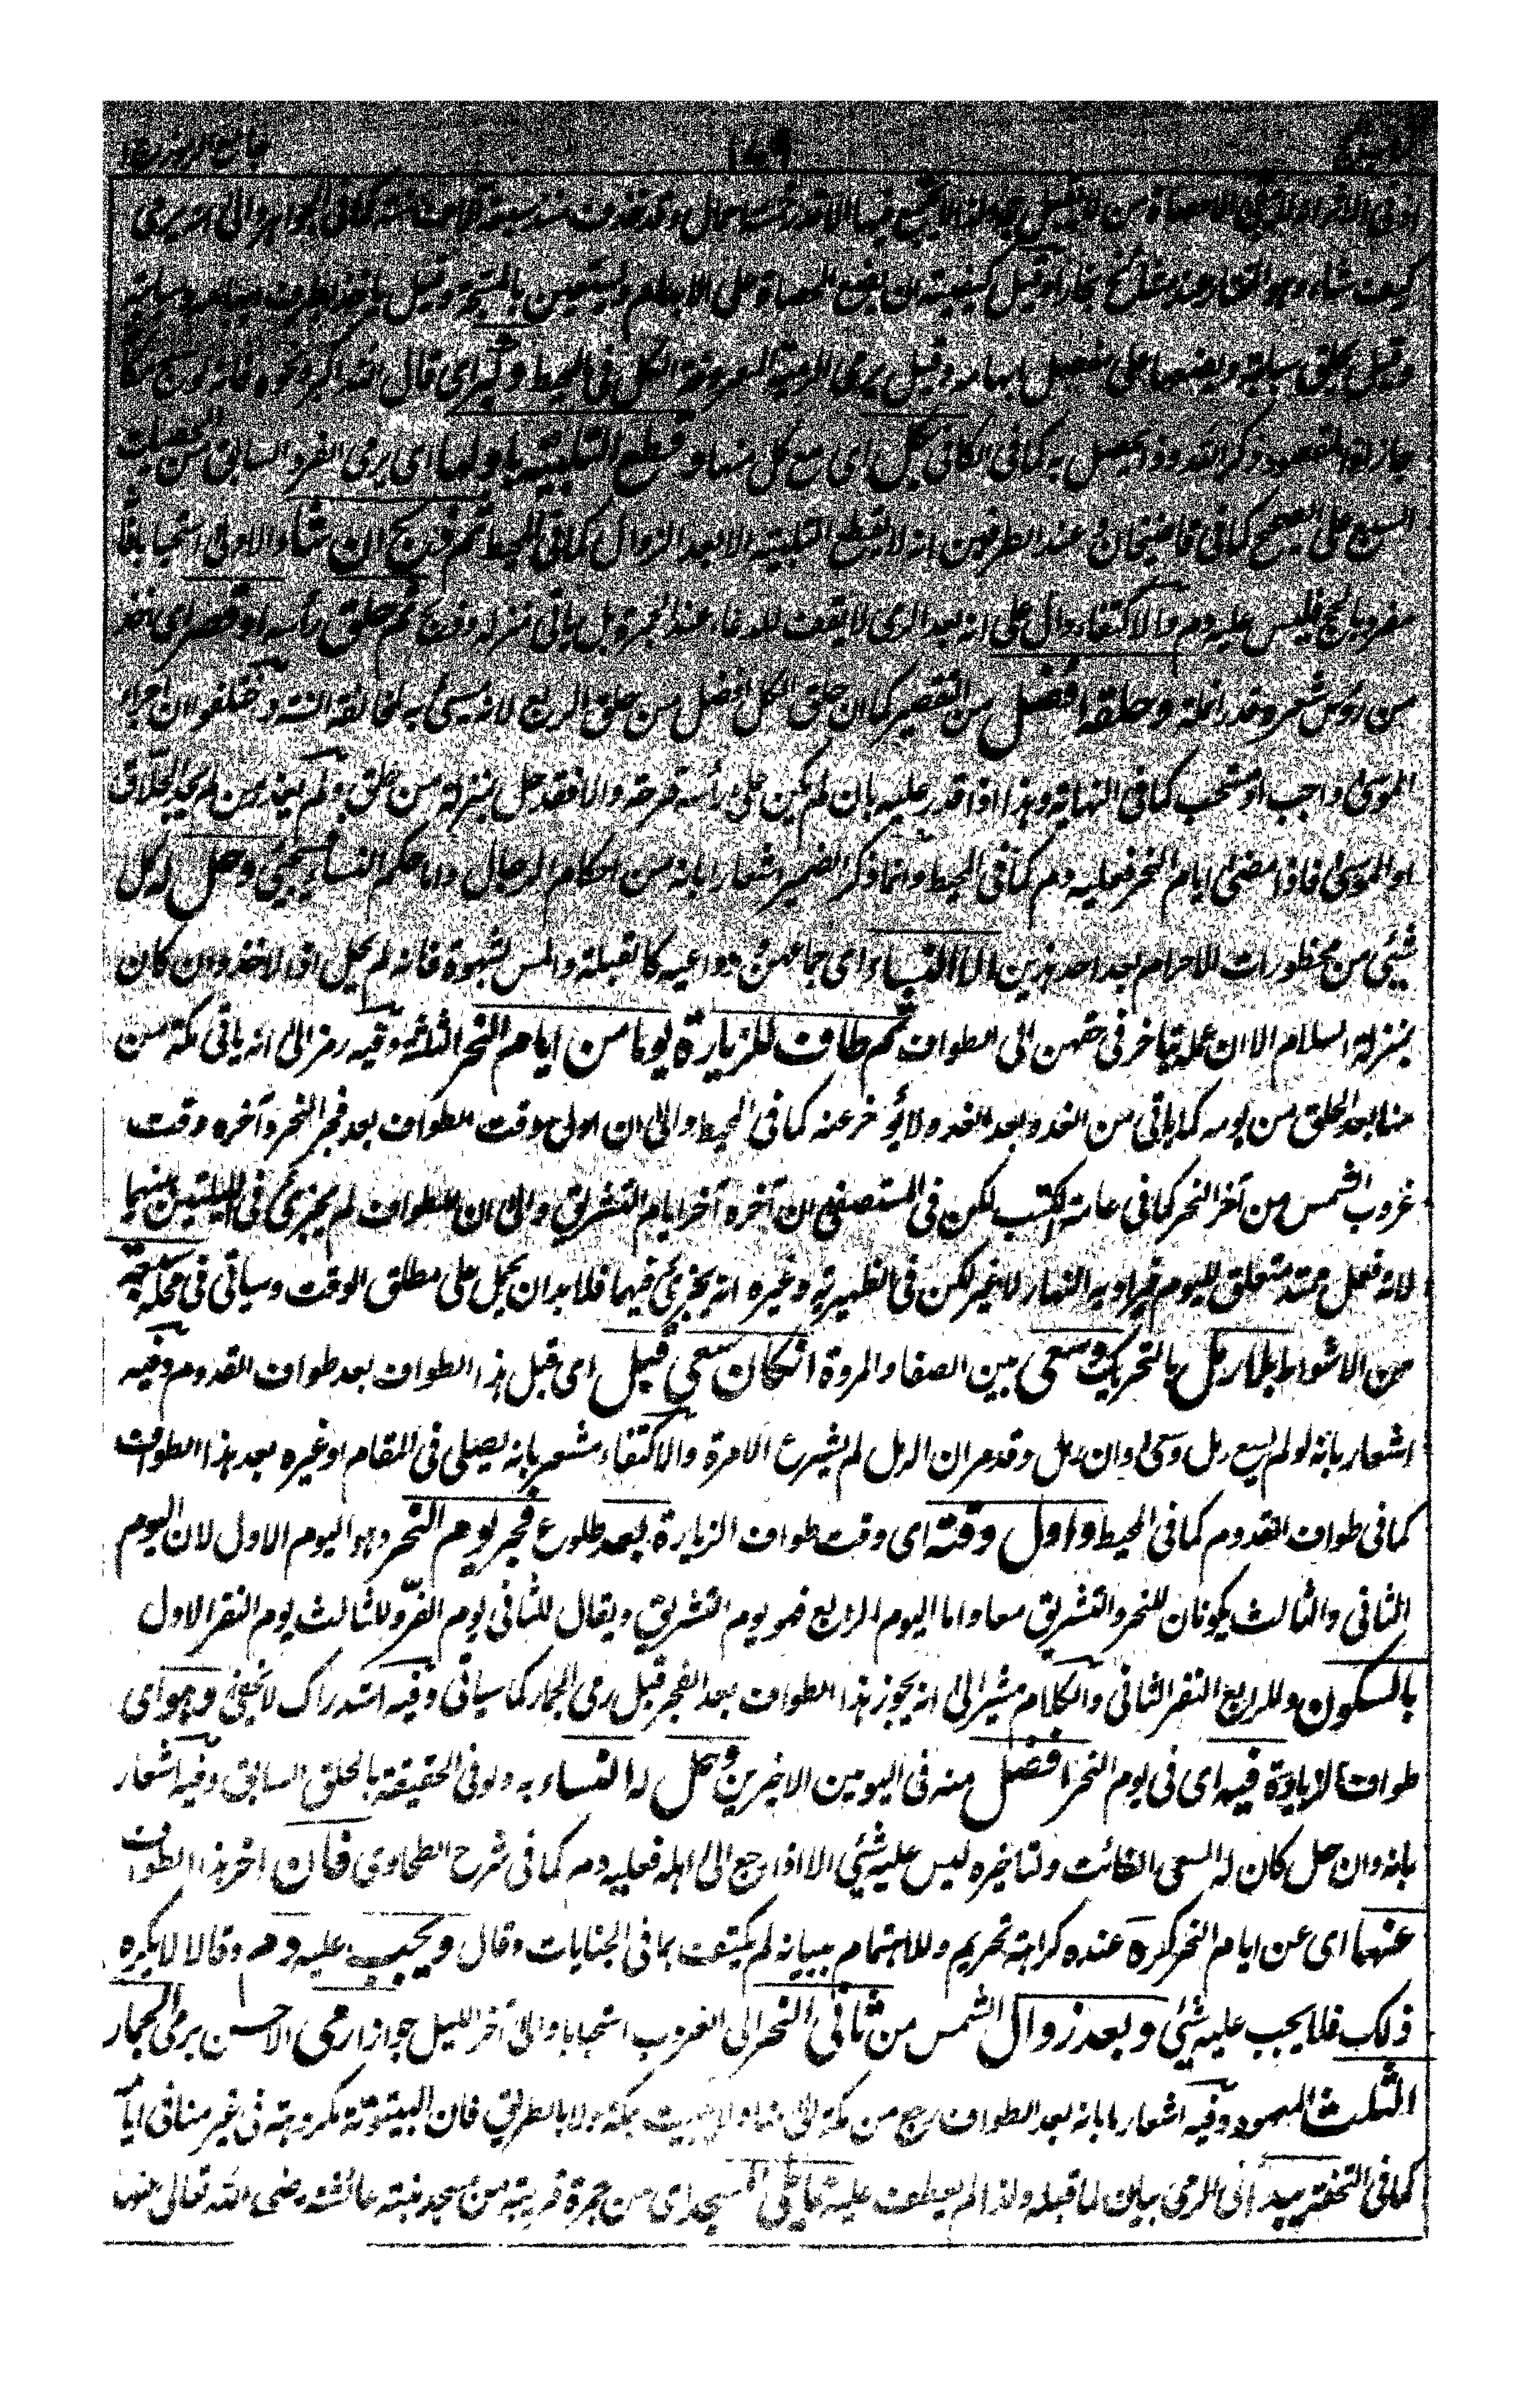 جامع الرموز ج١
كيف شاء وهو المختار عند مشائخ بخارا وقيل كيفيته ان يضع الحصاة على الابهام ويستعين بالمسبحة وقيل ياخذ بطرف ابهامه وسبابته
وقيل يحلق سبابته ويضعها على مفصل ابهامه وقيل يرمى الرمية المعروفة الكل فى المحيط وكبر اى قال الله اكبر ونحوه فانه لو سبح مكانه
جاز لان المقصود ذكر الله وذا يحصل به كما فى الكافى بكل اى مع كل منها وقطع التلبية باولها اى يرمى الفرد السابق من الحصيات
السبع على الصحيح كما فى قاضيخان وعند الطرفين انه لا يقطع التلبية الا بعد الزوال كما فى المحيط ثم ذبح ان شاء والاولى استحبابا فانه
مفرد بالحج فليس عليه دم والاكتفاء دال على انه بعد الرمى لا يقف للدعاء عند الجمرة بل ياتى منزله وذبح ثم حلق رأسه او قصر اى اخذ
من رؤس شعره قدر انملة وحلقه افضل من التقصير كما ان حلق الكل افضل من حلق الربع لانه مسئ به لمخالفة السنة واختلفوا ان اجراء
الموسى واجب او مستحب كما فى النهاية وهذا اذا قدر عليه بان لم يكن على رأسه قرحة والا فقد حل بمنزلة من حلق ولم يعذر من لم يجد الحلاق
او الموسى فاذا مضى ايام النحر فعليه دم كما فى المحيط وانما ذكر الضمير اشعارا بانه من احكام الرجال واما حكم النساء سيجئ وحل له كل
شئى من محظورات الاحرام بعد احد هذين الا النساء اى جماعهن ودواعيه كالقبلة والمس لشهوة فانه لم يحل اذ الاخذ وان كان
بمنزلة السلام الا ان عمله يتاخر فى حقهن الى الطواف ثم طاف للزيارة يوما من ايام النحر الثلاثة وفيه رمز الى انه ياتى مكة من
منا بعد الحلق من يومه كما ياتى من الغد وبعد الغد ولا يؤخر عنه كما فى المحيط والى ان اولى وقت الطواف بعد فجر النحر وآخره وقت
غروب الشمس من آخر النحر كما فى عامة الكتب لكن فى المستصفى ان آخره آخر ايام التشريق والى ان الطواف لم يجزئ فى الليلتين بينهما
لانه فعل ممتد متعلق لليوم فيراد به النهار لا غير لكن فى الظهيرية وغيره انه يجزئ فيها فلا بد ان يحمل على مطلق الوقت وسياتى فى محله
من الاشواط بلا رمل بالتحريك وسعى بين الصفا والمروة انكان سعى قبل اى قبل هذا الطواف بعد طواف القدوم وفيه
اشعار بانه لو لم يسع رمل وسعى وان رمل وقد مر ان الرمل لم يشرع الا مرة والاكتفاء مشعر بانه يصلى فى المقام او غيره بعد هذا الطواف
كما فى طواف القدوم كما فى المحيط واول وقته اى وقت طواف الزيارة بعد طلوع فجر يوم النحر وهو اليوم الاول لان اليوم
الثانى والثالث يكونان للنحر والتشريق معا واما اليوم الرابع فهو يوم التشريق ويقال للثانى يوم القر وللثالث يوم النفر الاول
بالسكون وللرابع النفر الثانى والكلام مشير الى انه يجوز هذا الطواف بعد الفجر قبل رمى الجمار كما سياتى وفيه استدراك لا يخفى وهو اى
طواف الزيادة فيه اى فى يوم النحر افضل منه فى اليومين الاخيرين وحل له النساء به ولو فى الحقيقة بالحلق السابق وفيه اشعار
بانه وان حل كان له السعى الفائت ولتاخيره ليس عليه شئى الا اذا رجع الى اهله فعليه دم كما فى شرح الطحاوى فان اخر هذا الطواف
عنها اى عن ايام النحر كره عنده كراهة تحريم وللاهتمام ببيانه لم يكتف بما فى الجنايات وقال ويجب عليه دم وقالا لا يكره
ذلك فلا يجب عليه شئى وبعد زوال الشمس من ثانى النحر الى الغروب استحبابا والى آخر الليل جوازا رمى الاحسن يرمى الجمار
الثلث المعهود وفيه اشعار بانه بعد الطواف رجع من مكة الى منا ولا يبيت بمكة ولا بالطريق فان البيتوتة مكروهة فى غير منا فى ايامه
كما فى التحفة يبدأ اى الرمى بيان لما قبله ولذا لم يعطف عليه مما يلى المسجد اى من جمرة قريبة من مسجد بنته عائشة رضى الله تعالى عنها